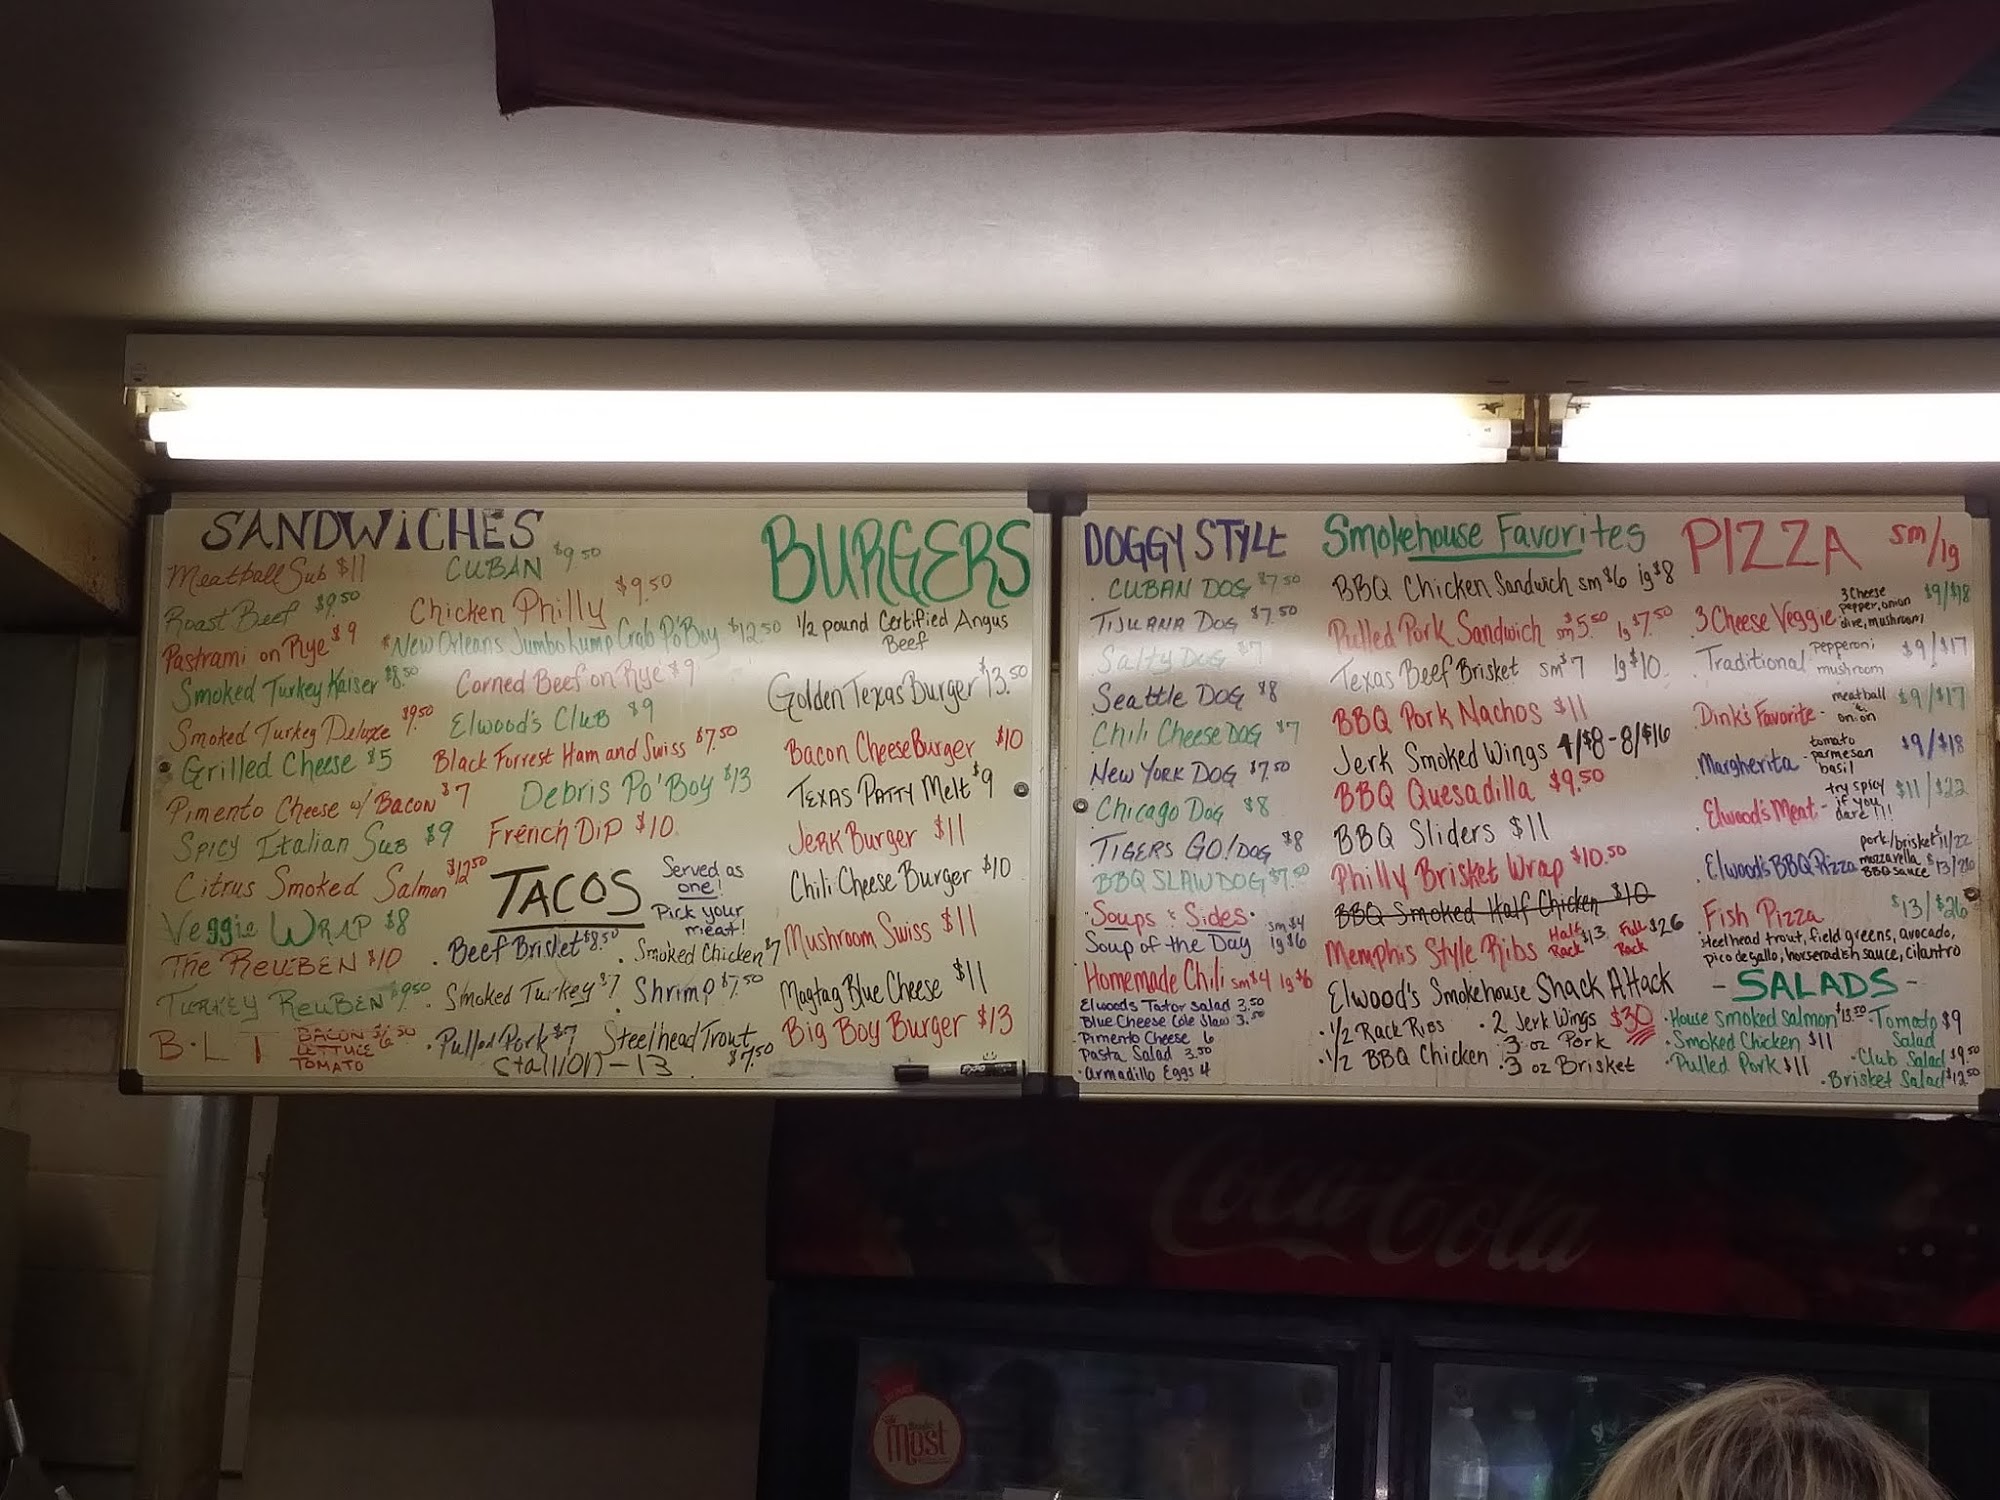 SANDWICHES
Meatball Sub $11
Roast Beef $9.50
Pastrami on Rye $9
Smoked Turkey Kaiser $8.50
Smoked Turkey Deluxe $9.50
Grilled Cheese $5
Pimento Cheese w/ Bacon $7
Spicy Italian Sub $9
Citrus Smoked Salmon $12.50
Veggie Wrap $8
The Reuben $10
Turkey Reuben $9.50
B·L T BACON $6.50
LETTUCE
TOMATO
CUBAN $9.50
Chicken Philly $9.50
*New Orleans Jumbo Lump Crab Po'Boy $12.50
Corned Beef on Rye $9
Elwood's Club $9
Black Forrest Ham and Swiss $7.50
Debris Po'Boy $13
French Dip $10
TACOS
Served as
one!
Pick your
meat!
. Beef Brisket $8.50
. Smoked Chicken $7
. Smoked Turkey $7
. Shrimp $7.50
. Pulled Pork $7
Steelhead Trout
$7.50
Stallion-13
BURGERS
1/2 pound Certified Angus
Beef
Golden Texas Burger $13.50
Bacon Cheese Burger $10
Texas Patty Melt $9
Jerk Burger $11
Chili Cheese Burger $10
Mushroom Swiss $11
Magtag Blue Cheese $11
Big Boy Burger $13
EXPO
DOGGY STYLE
. CUBAN DOG $7.50
TIJUANA DOG $7.50
Salty DOG $7
Seattle DOG $8
Chili Cheese DOG $7
New York DOG $7.50
Chicago Dog $8
TIGERS GO! DOG $8
BBQ SLAW DOG $7.50
Soups & Sides·
Soup of the Day sm $4
lg $6
Homemade Chili sm $4 lg $6
Elwood's Tator Salad 3.50
Blue Cheese Cole Slaw 3.50
·Pimento Cheese 6
Pasta Salad 3.50
·Armadillo Eggs 4
Smokehouse Favorites
BBQ Chicken Sandwich sm $6 lg $8
Pulled Pork Sandwich sm $5.50 lg $7.50
Texas Beef Brisket sm $7 lg $10
BBQ Pork Nachos $11
Jerk Smoked Wings 4/$8-8/$16
BBQ Quesadilla $9.50
BBQ Sliders $11
Philly Brisket Wrap $10.50
BBQ Smoked Half Chicken $10
Memphis Style Ribs Half Rack $13 Full Rack $26
Elwood's Smokehouse Shack Attack
· 1/2 Rack Ribs · 2 Jerk Wings $30
· 3 oz Pork
· 1/2 BBQ Chicken · 3 oz Brisket
PIZZA sm/lg
3 Cheese Veggie 3 Cheese
pepper, onion
olive, mushroom
$9/$18
Traditional pepperoni
mushroom $9/$17
Dink's Favorite - meatball
&
onion $9/$17
Margherita - tomato
parmesan
basil $9/$18
Elwood's Meat - try spicy
if you
dare!!! $11/$22
Elwood's BBQ Pizza pork/brisket $11/22
mozzarella
BBQ sauce $13/26
Fish Pizza $13/$26
steelhead trout, field greens, avocado,
pico de gallo, horseradish sauce, cilantro
- SALADS -
·House Smoked Salmon $13.50
·Smoked Chicken $11
·Pulled Pork $11
·Tomato $9
Salad
·Club Salad $9.50
·Brisket Salad $12.50
Coca-Cola
Most